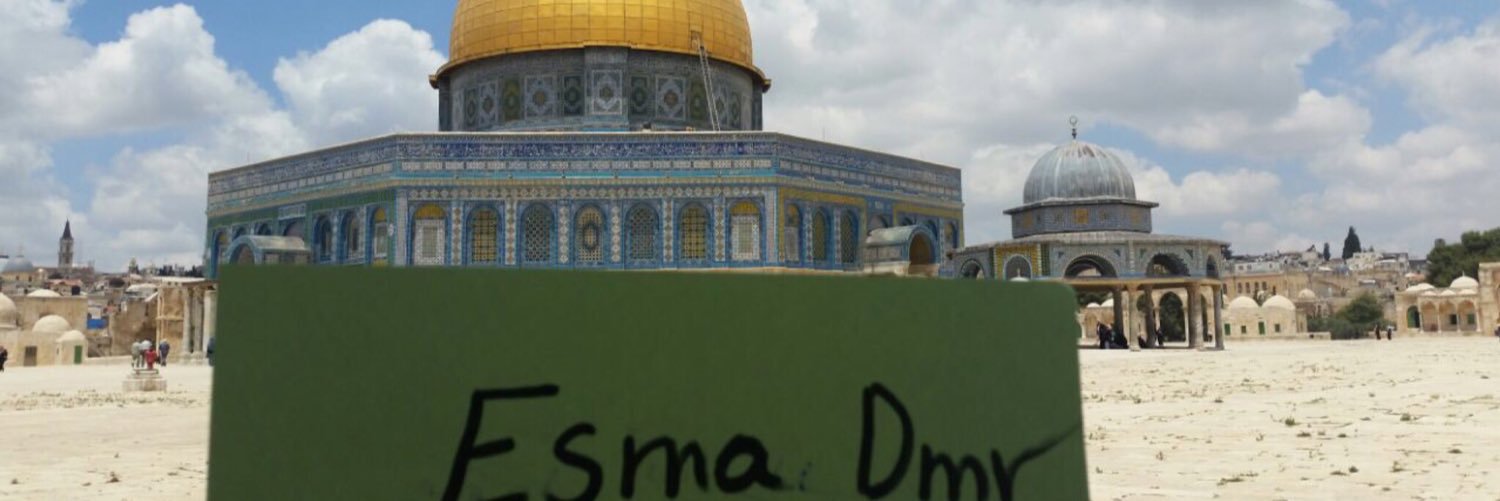 Esma Dmr